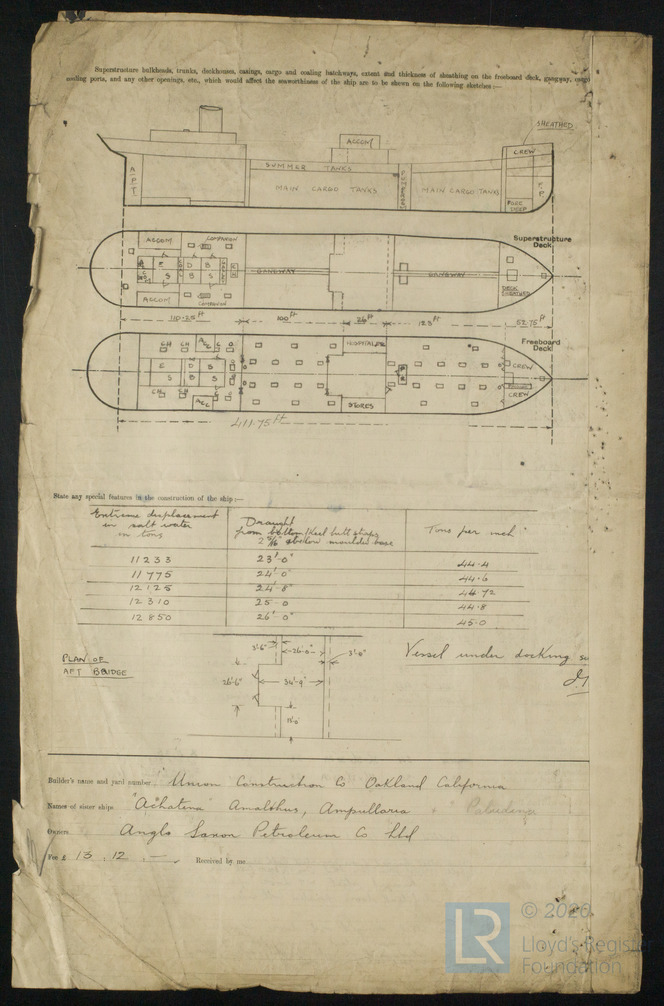 Superstructure bulkheads, trunks, deckhouses, casings, cargo and coaling hatchways, extent and thickness of sheathing on the freeboard deck, gangway, cargo
ports, and any other openings, etc., which would affect the seaworthiness of the ship are to be shewn on the following sketches :—
SHEATHED
ACCOM
CREW
SUMMER TANKS
A P T
MAIN CARGO TANKS
MAIN CARGO TANKS
F P
Superstructure
Deck
ACCOM
COMPANION
E D B
S B S
GANGWAY
GANGWAY
DECK
SHEATHED
ACCOM
COMPANION
110·25 ft
100 ft
26 ft
123 ft
52.75 ft
Freeboard
Deck
CH CH
HOSPITAL
E D B
S B S
CREW
CREW
CH CH
ACC
STORES
411.75 ft
State any special features in the construction of the ship :—
Extreme displacement
in salt water
in tons
Draught
from bottom Keel butt straps
below moulded base
Tons per inch
11233 23'-0" 44.4
11775 24'-0" 44.6
12125 24'-8" 44.72
12310 25-0 44.8
12850 26'-0" 45.0
3'-6"
26'-0"
3'-0"
Vessel under docking
PLAN OF
AFT BRIDGE
26'-6"
34'-9"
Builder's name and yard number Union Construction Co Oakland California
Names of sister ships "Achatina" Amalthus, Ampullaria
Owners Anglo Saxon Petroleum Co Ltd
Fee £ 13 . 12 . — , Received by me
LR
© 2020
Lloyd's Register
Foundation